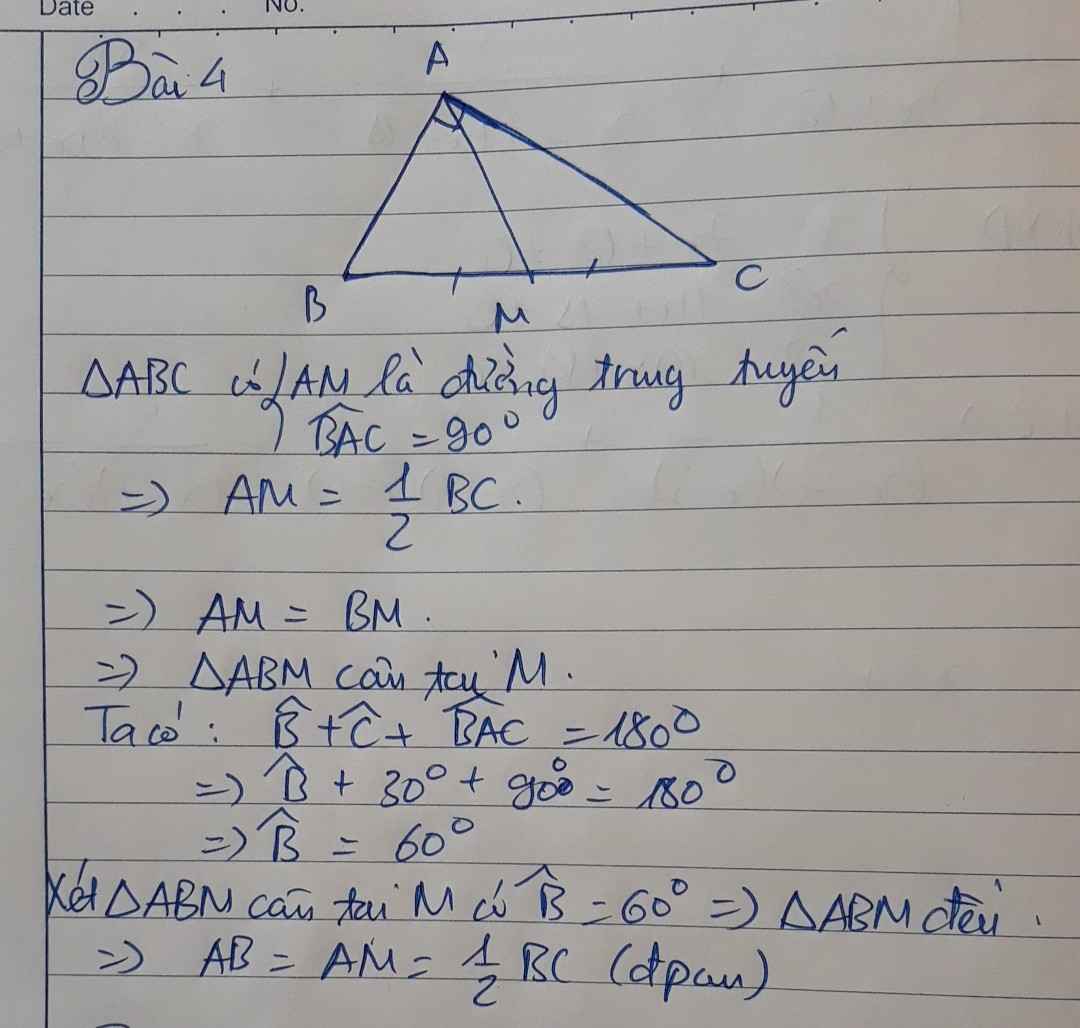 Date . . . No.
Bài 4
A
B
M
C
ΔABC có { AM là đường trung tuyến
BAĈ = 90°
=> AM = 1/2 BC.
=> AM = BM.
=> ΔABM cân tại M.
Ta có: B̂ + Ĉ + BAĈ = 180°
=> B̂ + 30° + 90° = 180°
=> B̂ = 60°
Xét ΔABM cân tại M có B̂ = 60° => ΔABM đều.
=> AB = AM = 1/2 BC (đpcm)